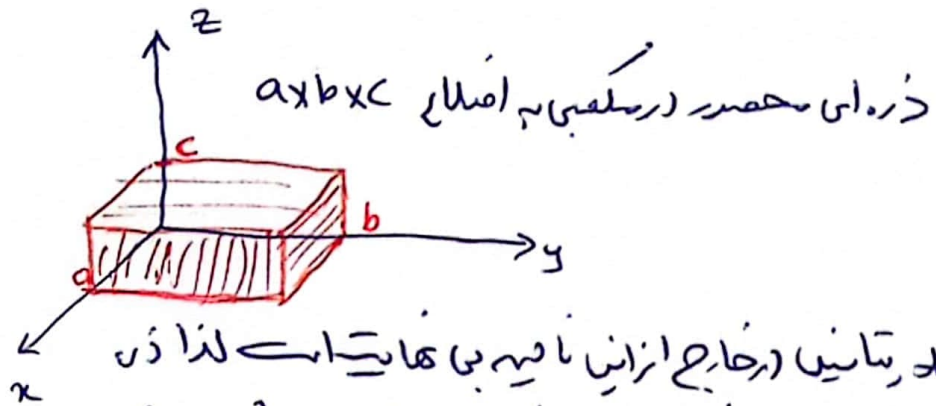 z
ذره ای محصور در مکعبی به اضلاع a×b×c
c
b
y
a
پتانسیل در خارج از این ناحیه بی نهایت است لذا ذره
x